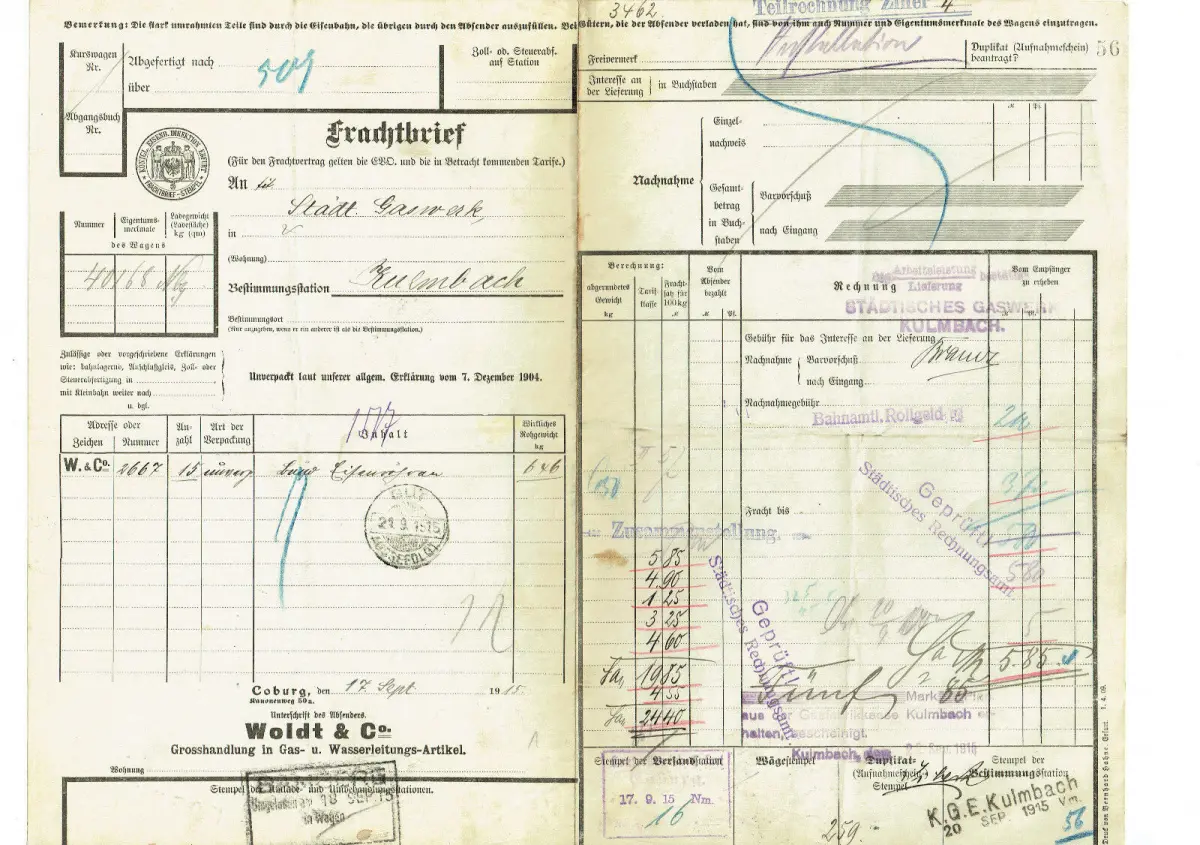 3462
Teilrechnung Ziffer 4
Bemerkung: Die stark umrahmten Teile sind durch die Eisenbahn, die übrigen durch den Absender auszufüllen. Bei Gütern, die der Absender verladen hat, sind von ihm auch Nummer und Eigentumsmerkmale des Wagens einzutragen.
Kurswagen
Nr.
Abgefertigt nach
509
über
Zoll- od. Steuerabf.
auf Station
Abgangsbuch
Nr.
KÖNIGL. EISENB. DIREKTION ERFURT
FRACHTBRIEF-STEMPEL
Frachtbrief
(Für den Frachtvertrag gelten die EVO. und die in Betracht kommenden Tarife.)
An
Städt. Gaswerk
in
(Wohnung)
Bestimmungsstation Kulmbach
Bestimmungsort
(Nur anzugeben, wenn er ein anderer ist als die Bestimmungsstation.)
Nummer
Eigentums-
merkmale
Ladegewicht
(Ladefläche)
kg (qm)
des Wagens
40168
Zulässige oder vorgeschriebene Erklärungen
wie: bahnlagernd, Anschlußgleis, Zoll- oder
Steuerabfertigung in
mit Kleinbahn weiter nach
u. dgl.
Unverpackt laut unserer allgem. Erklärung vom 7. Dezember 1904.
Adresse oder
Zeichen Nummer
An-
zahl
Art der
Verpackung
Inhalt
Wirkliches
Rohgewicht
kg
W. & Co. 2667 15 unverp. Bund Eisenröhren 646
21.9.1915
Coburg, den 17 Sept 1915.
Kanonenweg 50a.
Unterschrift des Absenders.
Woldt & Co.
Grosshandlung in Gas- u. Wasserleitungs-Artikel.
Wohnung
Stempel der Anlade- und Umbehandlungsstationen.
18 SEP 15
in Wagen
Freivermerk
Installation
Duplikat (Aufnahmeschein)
beantragt?
56
Interesse an
der Lieferung
in Buchstaben
Nachnahme
Einzel-
nachweis
Gesamt-
betrag
in Buch-
staben
Barvorschuß
nach Eingang
Berechnung:
abgerundetes
Gewicht
kg
Tarif-
klasse
Fracht-
satz für
100 kg
Vom
Absender
bezahlt
Rechnung
Vom Empfänger
zu erheben
Arbeitsleistung
Lieferung
STÄDTISCHES GASWERK
KULMBACH.
Gebühr für das Interesse an der Lieferung
Nachnahme
Barvorschuß
nach Eingang
Nachnahmegebühr
Bahnamtl. Rollgeld
Fracht bis
Geprüft!
Städtisches Rechnungsamt
Zusammenstellung.
5 85
4 90
1 25
3 25
4 60
19 85
4 55
24 40
Geprüft!
Städtisches Rechnungsamt.
5
5 85
Fünf Mark 85
aus der Gasfabrikkasse Kulmbach er-
halten, bescheinigt.
Kulmbach, dem Sept. 1915
Stempel der Versandstation
17. 9. 15 Nm.
16
Wägestempel
259
Duplikat-
(Aufnahmeschein-)
Stempel
Stempel der
Bestimmungsstation
K.G.E. Kulmbach
20 SEP. 1915 Vm.
56
Druck von Bernhard Böhne, Erfurt 1. 4. 09.